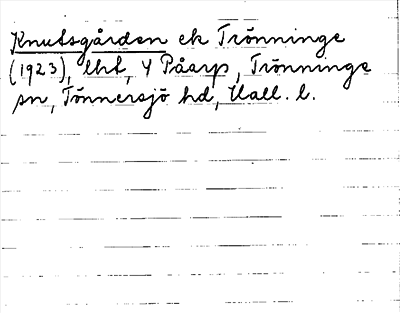 Knutsgården ek Trönninge
(1923), lht, Y Påarp, Trönninge
sn, Tönnersjö hd, Hall. l.